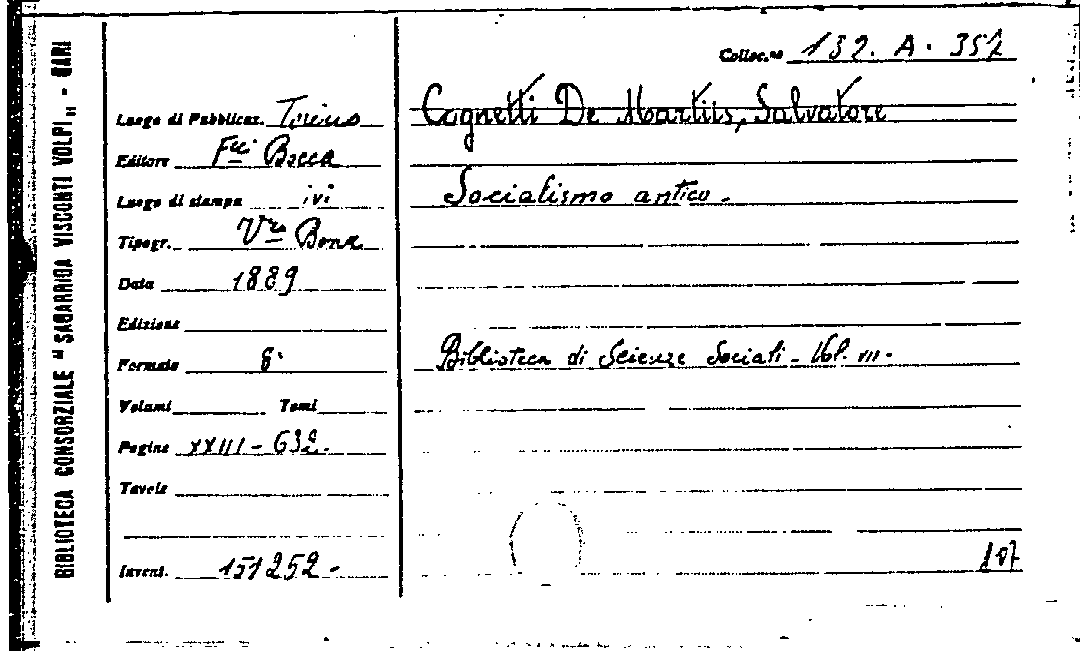 BIBLIOTECA CONSORZIALE "SAGARRIGA VISCONTI VOLPI" - BARI
Colloc.ne 132. A. 352
Luogo di Pubblicaz. Torino
Editore F.lli Bocca
Luogo di stampa ivi
Tipogr. V.za Bona
Data 1889
Edizione
Formato 8°
Volumi Tomi
Pagine XXIII - 632.
Tavole
Invent. 151252 -
Cognetti De Martiis, Salvatore
Socialismo antico.
Biblioteca di Scienze Sociali - Vol. VII.
107